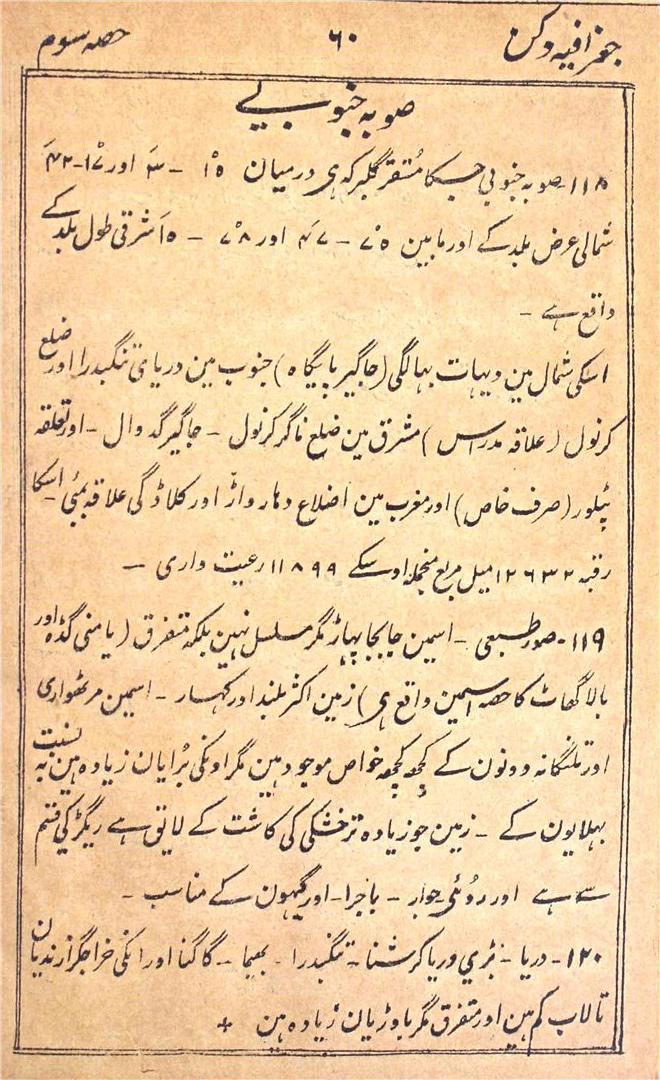 جغرافیه دکن ۶۰ حصه سوم
صوبه جنوبی
۱۱۸ - صوبه جنوبی جسکا مُستقر گلبرکه هی درمیان ۱۵° - ۳َ اور ۱۷° - ۴۲َ
شمالی عرض بلد کے اور مابین ۷۵° - ۴۷َ اور ۷۸° - ۱۵َ شرقی طول بلد کے
واقع ہے -
اسکی شمال مین دیہات بہالگی (جاگیر پائیگاہ) جنوب مین دریای تنگبدرا اور ضلع
کرنول (علاقه مدراس) مشرق مین ضلع ناگر کرنول - جاگیر گدوال - اور تعلقه
پٹلور (صرف خاص) اور مغرب مین اضلاع دہارواڑ اور کلاڈگی علاقه بمبئی - اسکا
رقبه ۱۲۶۳۲ میل مربع منجمله اوسکے ۱۱۸۹۹ رعیت واری -
۱۱۹ - صور طبعی - اسمین جابجا پہاڑ مگر مسلسل نہین بلکه متفرق (یامنی گڈه اور
بالاگھاٹ کا حصه اسمین واقع ہی) زمین اکثر بلند اور کہسار - اسمین مرٹھواری
اور تلنگانه دونون کے کچھه کچھه خواص موجود ہین مگر اونکی بُرایان زیاده ہین به نسبت
بہلایون کے - زمین جو زیاده تر خشکی کی کاشت کے لایق ہے ریگڑ کی قسم
سے ہے اور روئی جوار - باجرا - اور گیہون کے مناسب -
۱۲۰ - دریا - بڑی دریا کرشنا - تنگبدرا - بھیما - گاگنا اور انکی خراجگزار ندیان
تالاب کم ہین اور متفرق مگر باوڑیان زیاده ہین +